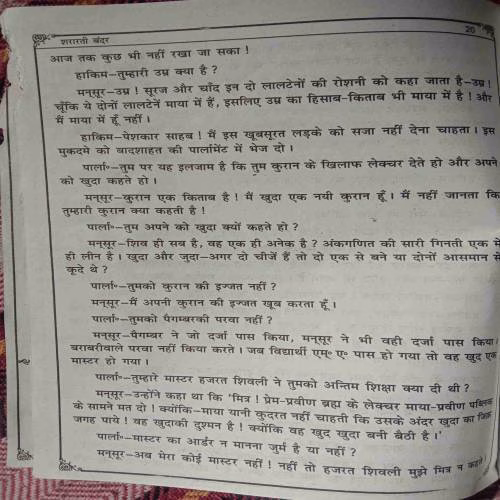 शरारती बंदर
20
आज तक कुछ भी नहीं रखा जा सका !
हाकिम–तुम्हारी उम्र क्या है ?
मन्सूर–उम्र ! सूरज और चाँद इन दो लालटेनों की रोशनी को कहा जाता है–उम्र !
चूँकि ये दोनों लालटेनें माया में हैं, इसलिए उम्र का हिसाब-किताब भी माया में है ! और
मैं माया में हूँ नहीं ।
हाकिम–पेशकार साहब ! मैं इस खूबसूरत लड़के को सजा नहीं देना चाहता । इस
मुकदमे को बादशाहत की पार्लामेंट में भेज दो ।
पार्ला॰–तुम पर यह इलजाम है कि तुम कुरान के खिलाफ लेक्चर देते हो और अपने
को खुदा कहते हो ।
मन्सूर–कुरान एक किताब है ! मैं खुदा एक नयी कुरान हूँ । मैं नहीं जानता कि
तुम्हारी कुरान क्या कहती है !
पार्ला॰–तुम अपने को खुदा क्यों कहते हो ?
मन्सूर–शिव ही सब है, वह एक ही अनेक है ? अंकगणित की सारी गिनती एक में
ही लीन है । खुदा और जुदा–अगर दो चीजें हैं तो दो एक से बने या दोनों आसमान से
कूदे थे ?
पार्ला॰–तुमको कुरान की इज्जत नहीं ?
मन्सूर–मैं अपनी कुरान की इज्जत खूब करता हूँ ।
पार्ला॰–तुमको पैगम्बरकी परवा नहीं ?
मन्सूर–पैगम्बर ने जो दर्जा पास किया, मन्सूर ने भी वही दर्जा पास किया ।
बराबरीवाले परवा नहीं किया करते । जब विद्यार्थी एम्॰ ए॰ पास हो गया तो वह खुद एक
मास्टर हो गया ।
पार्ला॰–तुम्हारे मास्टर हजरत शिवली ने तुमको अन्तिम शिक्षा क्या दी थी ?
मन्सूर–उन्होंने कहा था कि "मित्र ! प्रेम-प्रवीण ब्रह्म के लेक्चर माया-प्रवीण पब्लिक
के सामने मत दो ! क्योंकि–माया यानी कुदरत नहीं चाहती कि उसके अंदर खुदा का जिक्र
जगह पाये ! वह खुदाकी दुश्मन है ! क्योंकि वह खुद खुदा बनी बैठी है ।'
पार्ला॰–मास्टर का आर्डर न मानना जुर्म है या नहीं ?
मन्सूर–अब मेरा कोई मास्टर नहीं ! नहीं तो हजरत शिवली मुझे मित्र न कहते